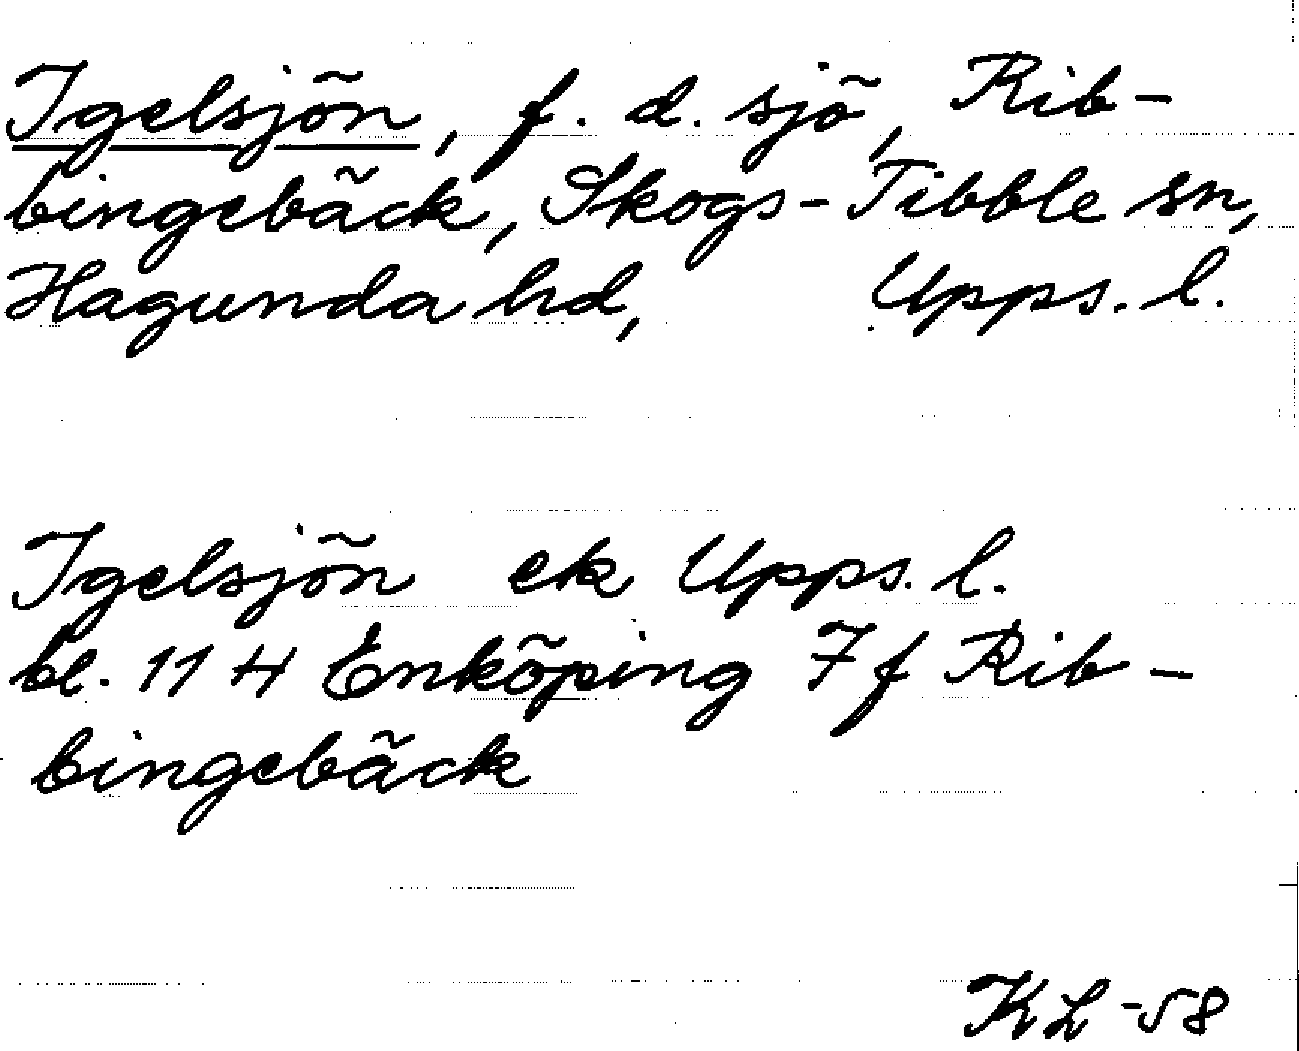 Igelsjön, f. d. sjö, Rib-
bingebäck, Skogs-Tibble sn,
Hagunda hd, Upps. l.
Igelsjön ek Upps. l.
bl. 11 H Enköping 7 f Rib-
bingebäck
KL -58